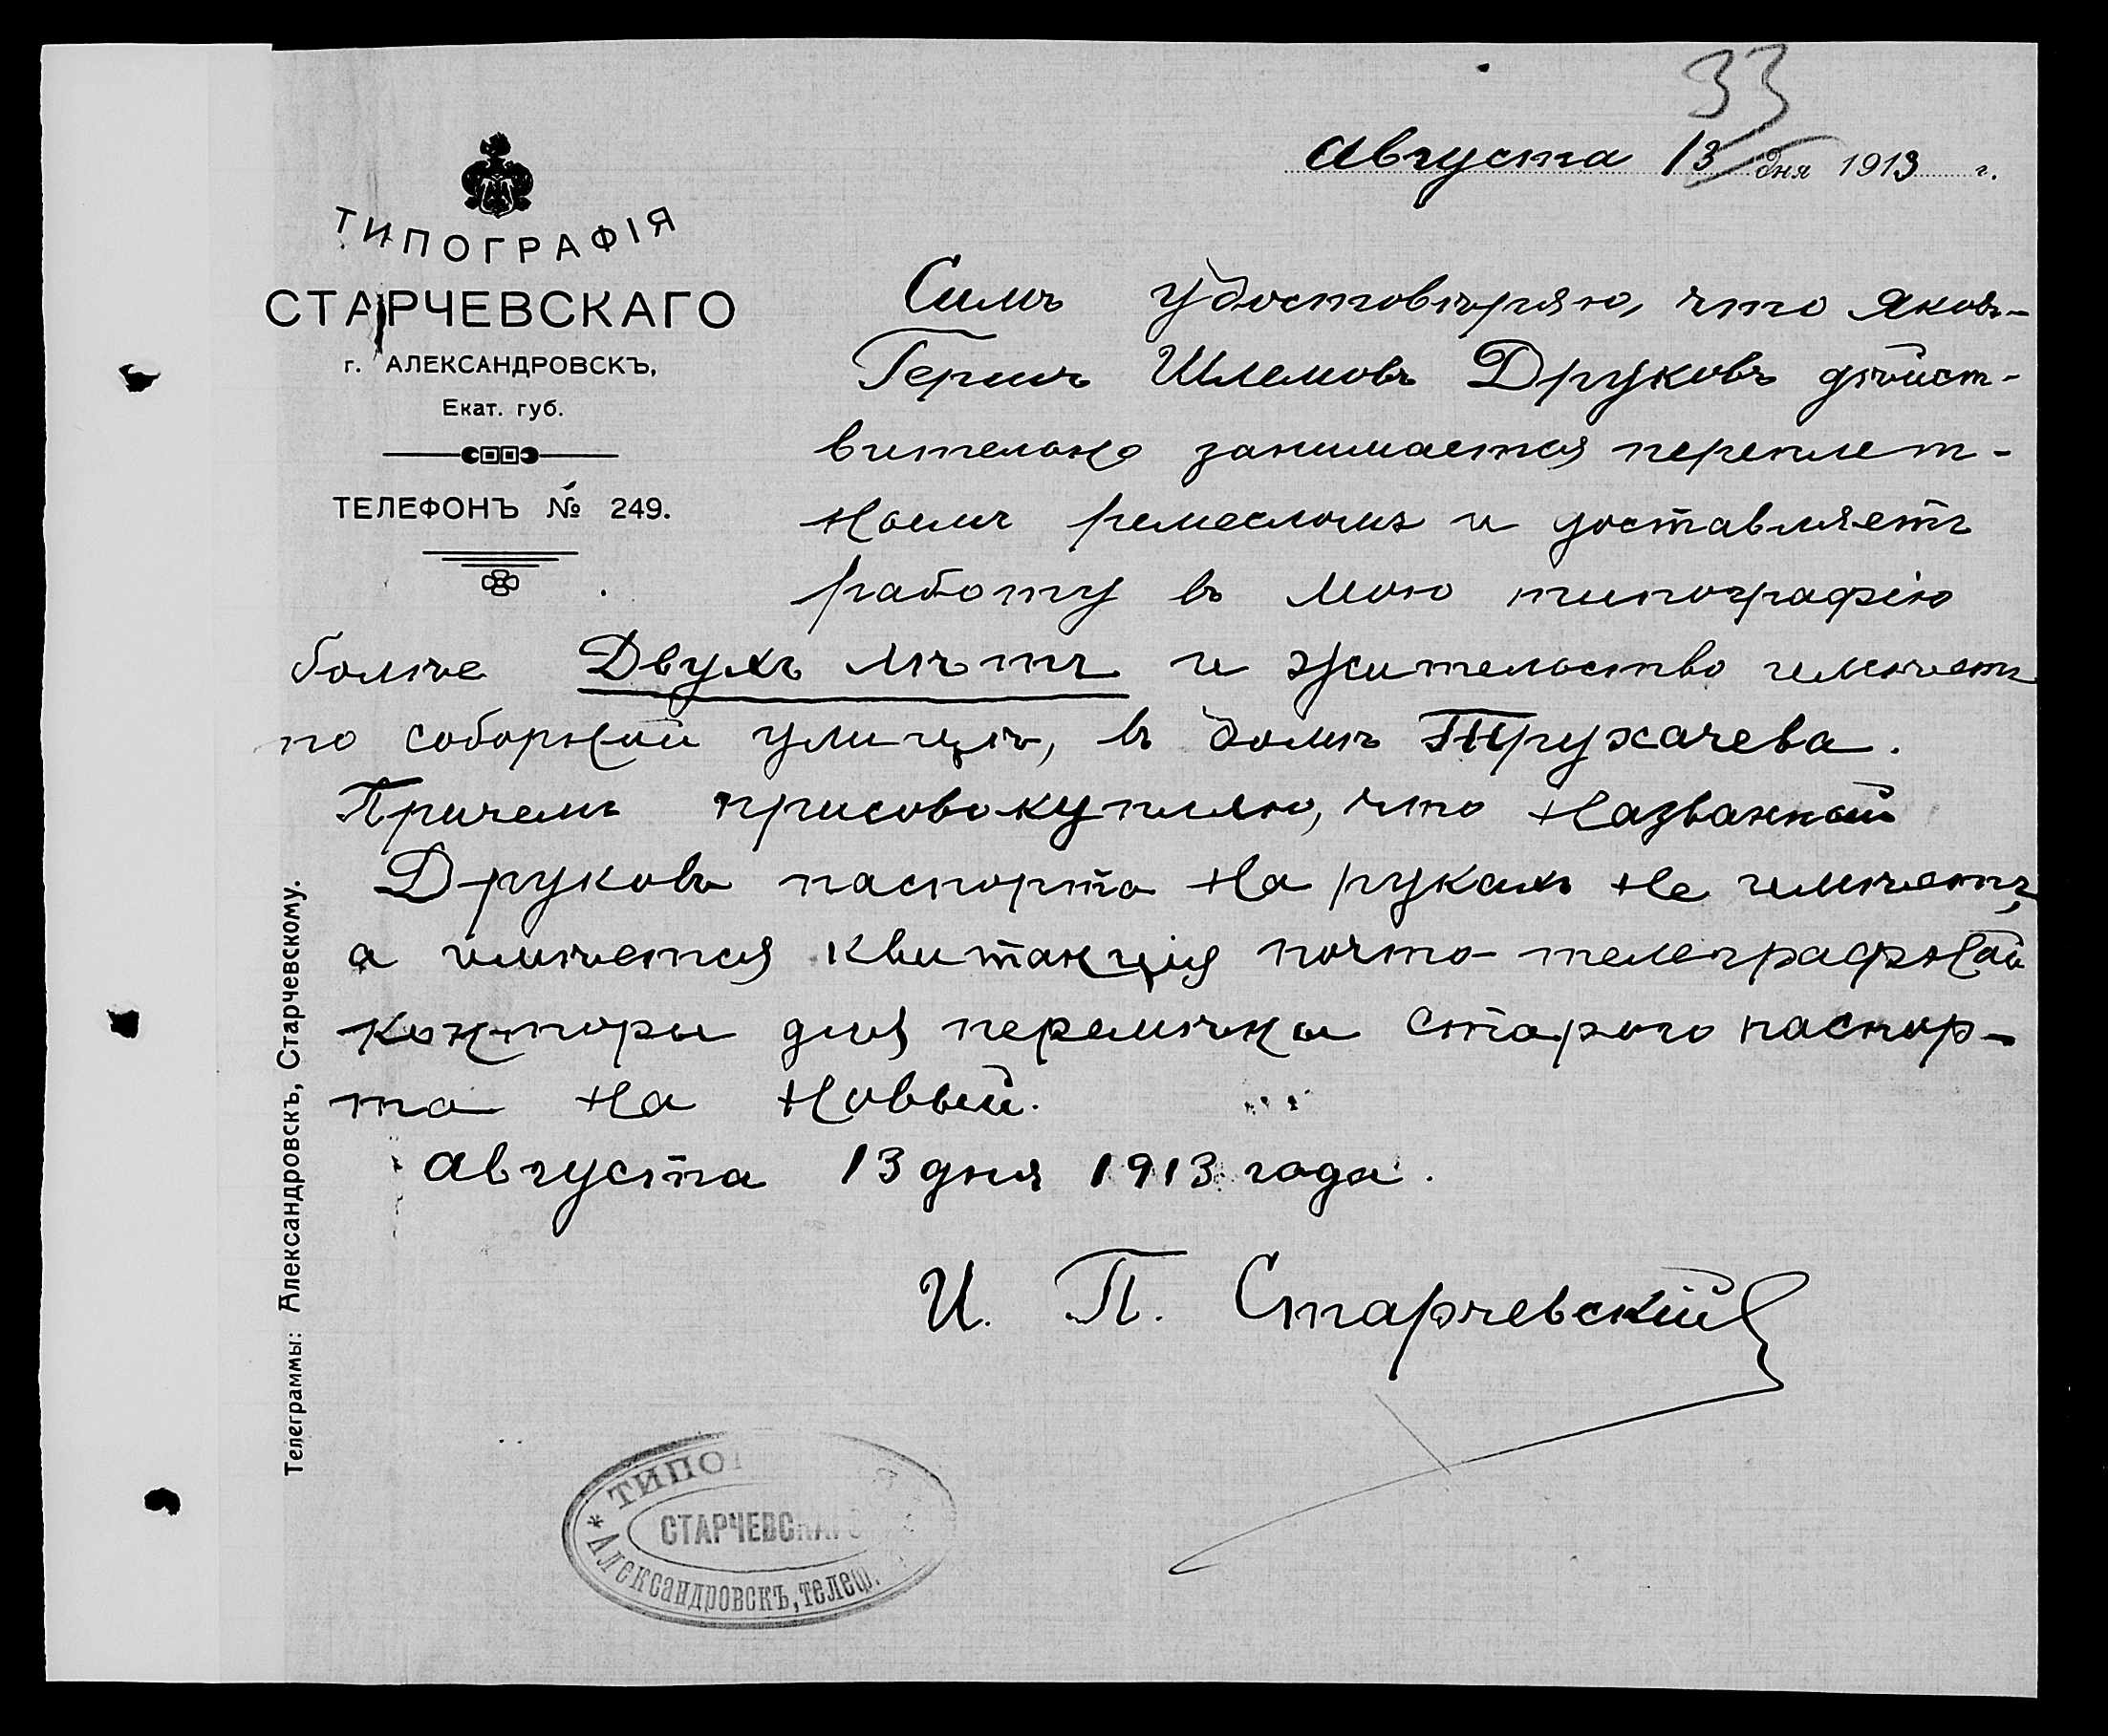 33
Августа 13 дня 1913 г.
ТИПОГРАФІЯ
СТАРЧЕВСКАГО
г. АЛЕКСАНДРОВСКЪ,
Екат. губ.
ТЕЛЕФОНЪ № 249.
Симъ удостовѣряю, что Яковъ-
Гершъ Шлемовъ Друковъ дѣйст-
вительно занимается переплет-
нымъ ремесломъ и доставляетъ
работу въ мою типографію
болѣе Двухъ лѣтъ и жительство имѣетъ
по соборной улицѣ, въ домѣ Трухачева.
Причемъ присовокупляю, что названный
Друковъ паспорта на рукахъ не имѣетъ,
а имѣется квитанція почто-телеграфной
конторы для перемѣны старого паспор-
та на новый.
Августа 13 дня 1913 года.
И. П. Старчевскій
Телеграммы: Александровскъ, Старчевскому.
ТИПОГ
СТАРЧЕВСКАГО
* Александровскъ, телеф.